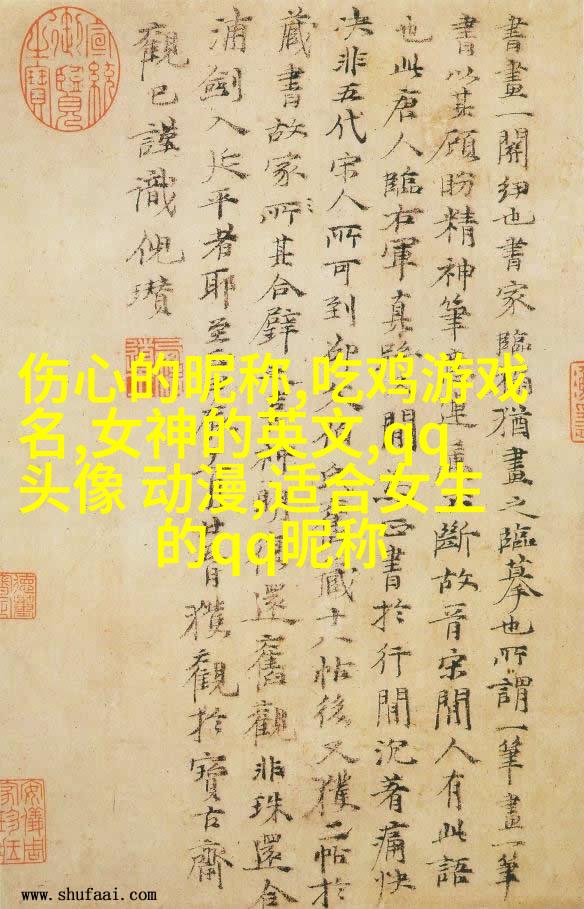 書畫一關紐也書家臨猶畫之臨摹也所謂一筆畫一筆
書以其顧盼精神筆連不斷故晉宋間人有此語
也此唐人臨右軍真跡間正書於行間沉著痛快
決非五代宋人所可到藏十八帖後又獲二帖於
藏書故家所其合璧神明還舊觀非珠還合
浦劍入延平者耶至昔獲觀於寶古齋
觀已謹識倪瓚
宣統御覽之寶
伤心的昵称,吃鸡游戏
名,女神的英文,qq
头像 动漫,适合女生
的qq昵称
www.shufaai.com